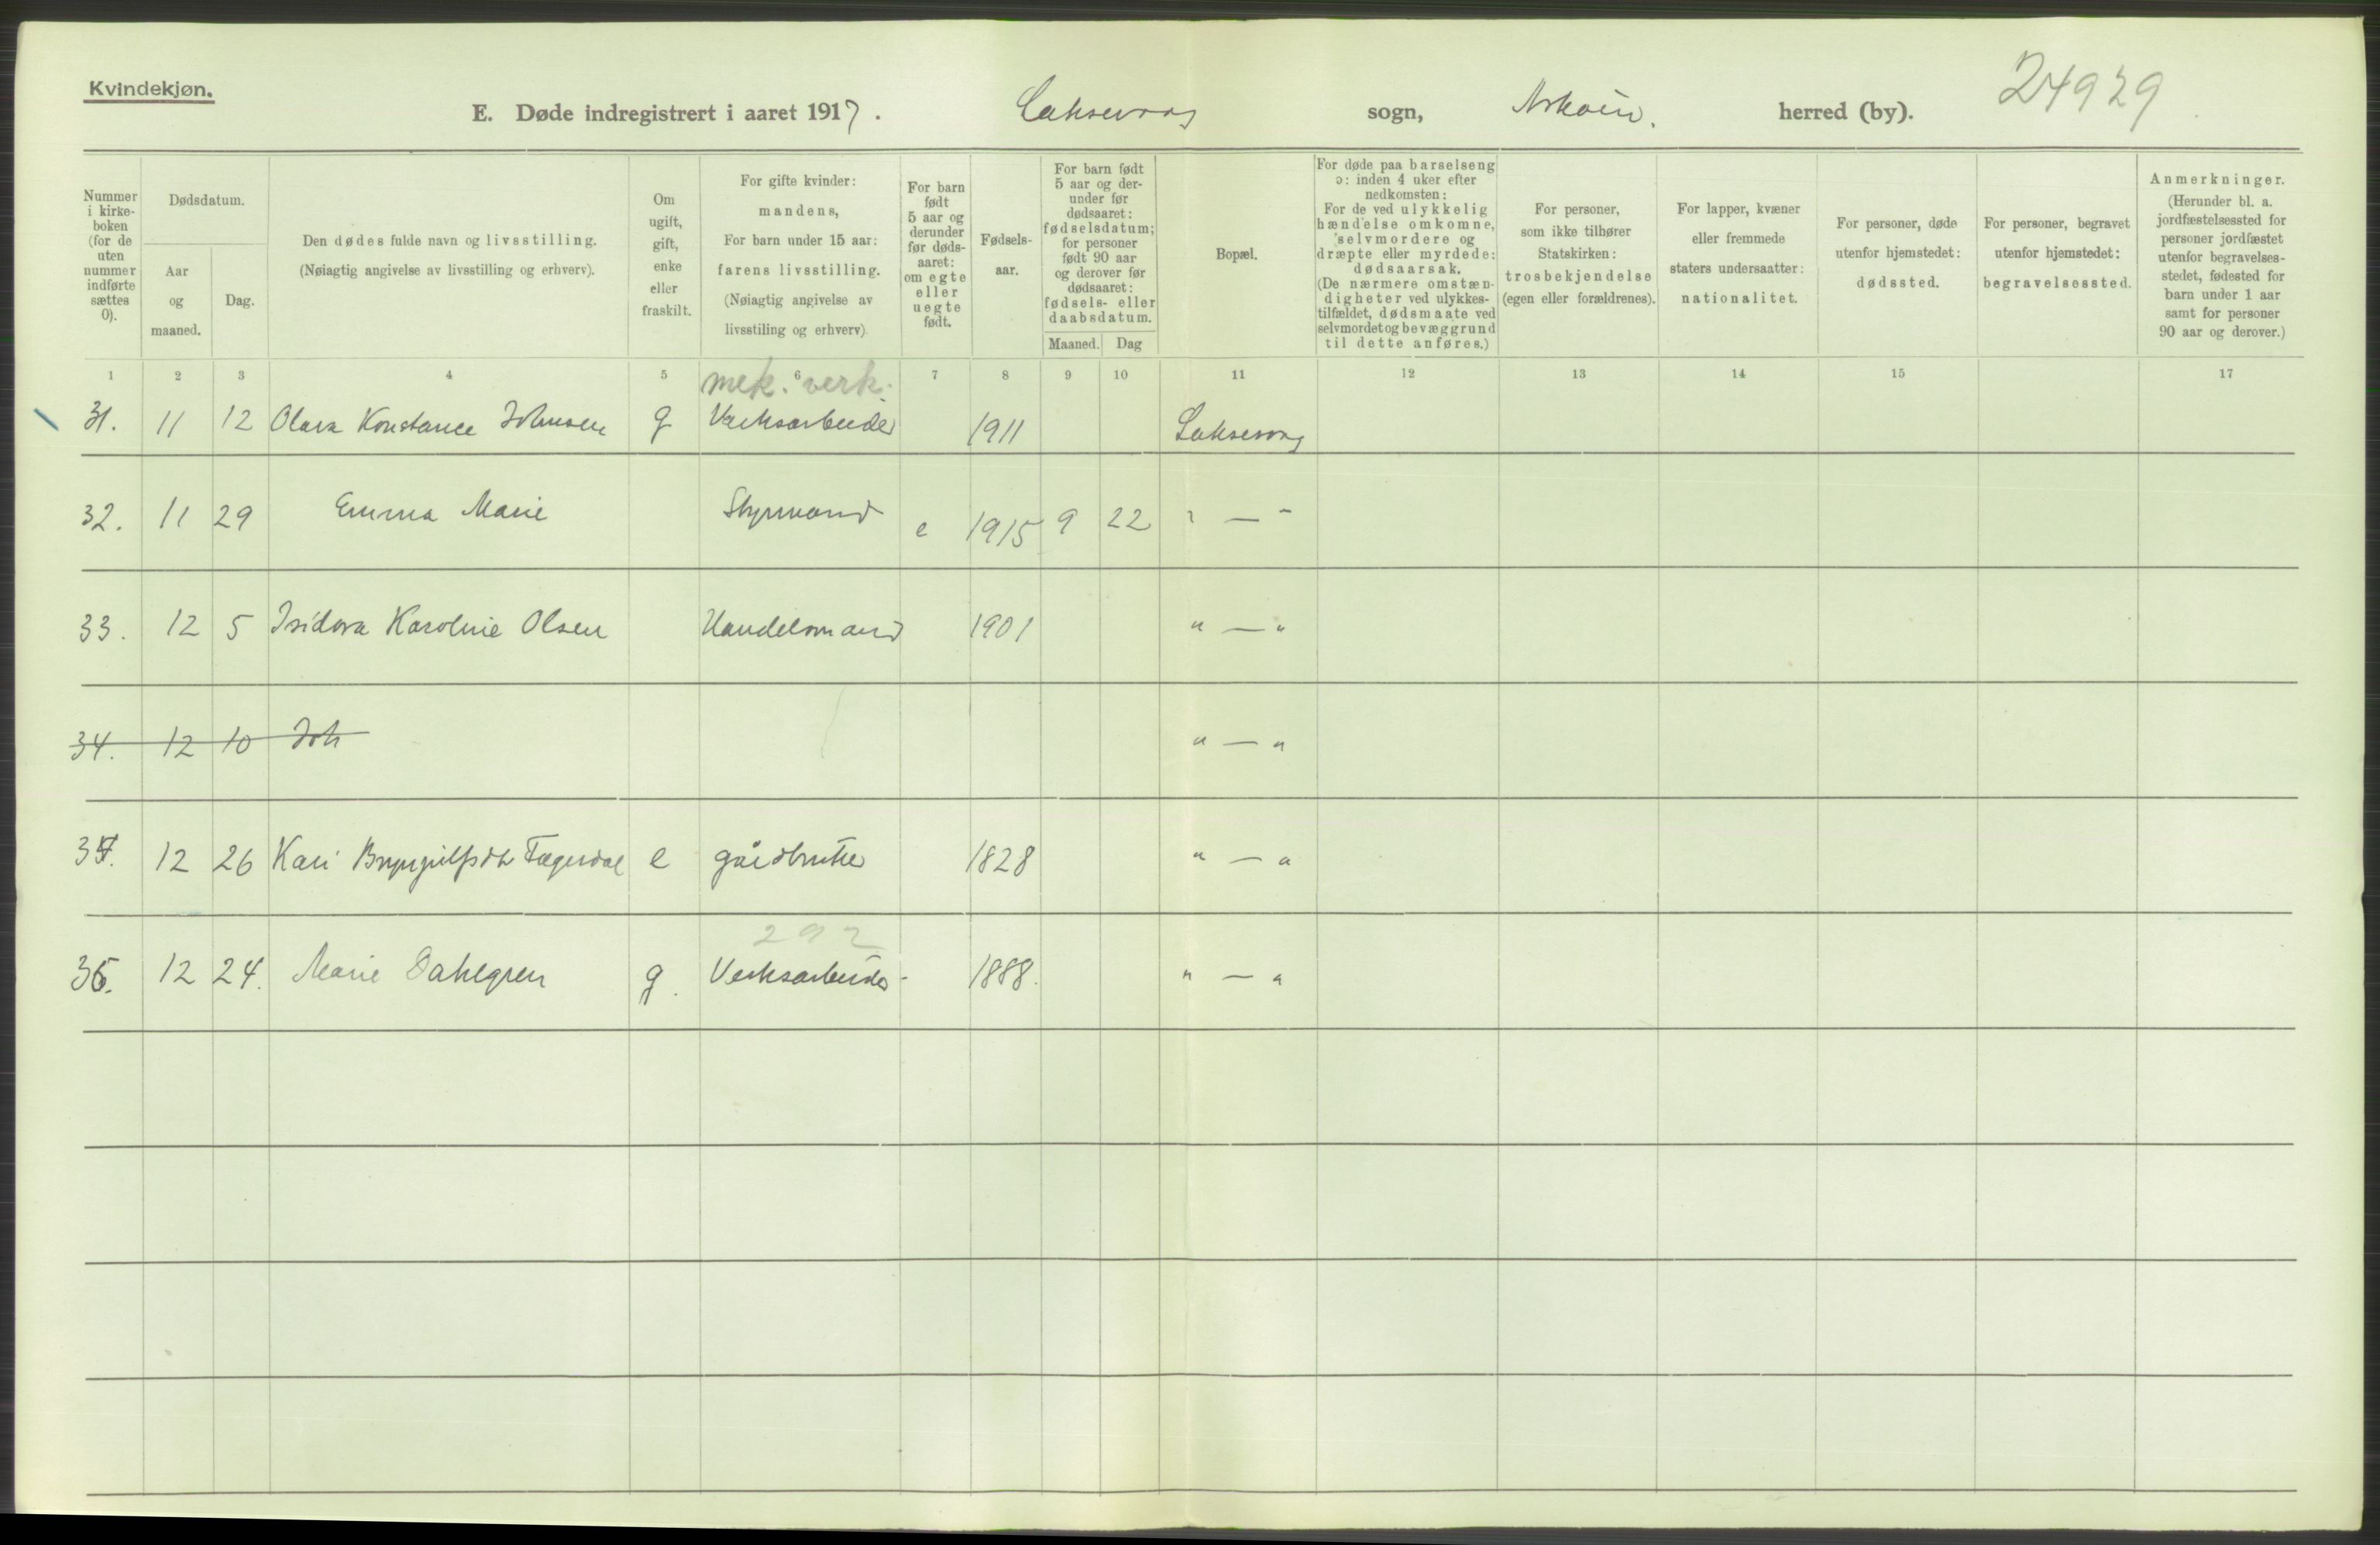 Kvindekjøn.
E. Døde indregistrert i aaret 1917. Laksevaag sogn, Askøen. herred (by). 24929
Nummer i kirke- boken (for de uten nummer indførte sættes 0).
Dødsdatum.
Aar og maaned.
Dag.
Den dødes fulde navn og livsstilling.
(Nøiagtig angivelse av livsstilling og erhverv).
Om ugift, gift, enke eller fraskilt.
For gifte kvinder: mandens,
For barn under 15 aar: farens livsstilling.
(Nøiagtig angivelse av livsstiling og erhverv).
For barn født 5 aar og derunder før døds- aaret: om egte eller uegte født.
Fødsels- aar.
For barn født 5 aar og der- under før dødsaaret: fødselsdatum; for personer født 90 aar og derover før dødsaaret: fødsels- eller daabsdatum.
Maaned. Dag
Bopæl.
For døde paa barselseng ɔ: inden 4 uker efter nedkomsten:
For de ved ulykkelig hændelse omkomne, selvmordere og dræpte eller myrdede: dødsaarsak.
(De nærmere omstæn- digheter ved ulykkes- tilfældet, dødsmaate ved selvmordet og bevæggrund til dette anføres.)
For personer, som ikke tilhører Statskirken: trosbekjendelse (egen eller forældrenes).
For lapper, kvæner eller fremmede staters undersaatter: nationalitet.
For personer, døde utenfor hjemstedet: dødssted.
For personer, begravet utenfor hjemstedet: begravelsessted.
Anmerkninger.
(Herunder bl. a. jordfæstelsessted for personer jordfæstet utenfor begravelses- stedet, fødested for barn under 1 aar samt for personer 90 aar og derover.)
1 2 3 4 5 6 7 8 9 10 11 12 13 14 15 17
mek. verk.
31. 11 12 Olava Konstance Johnsen g Verksarbeider 1911 Laksevaag
32. 11 29 Emma Marie Styrmand e 1915 9 22 " — "
33. 12 5 Isidora Karoline Olsen Handelsmand 1901 " — "
34. 12 10 Joh " — "
35. 12 26 Kari Brynjulfsdtr Fagerdal e gårdbruker 1828 " — "
292
36. 12 24. Marie Dahlgren g. Verksarbeider 1888. " — "